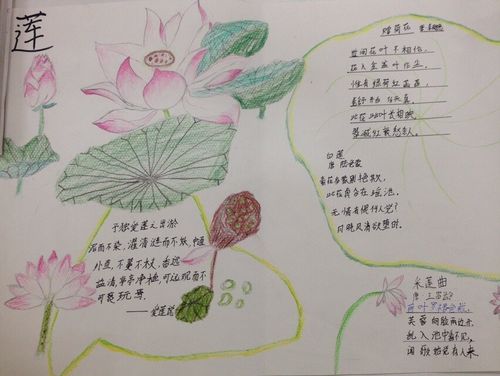 莲
赠荷花
世间花叶不相伦,
花入金盆叶作尘。
惟有绿荷红菡萏,
此花此叶长相映,
翠减红衰愁杀人。
白莲
唐
此花真合在瑶池。
无情有恨何人觉?
月晓风清欲堕时。
予独爱莲之出淤
泥而不染,濯清涟而不妖,中通
外直,不蔓不枝,香远
益清,亭亭净植,可远观而不
可亵玩焉。
——爱莲说
采莲曲
唐 王昌龄
荷叶罗裙色裁,
芙蓉向脸两边开。
乱入池中看不见,
闻歌始觉有人来。